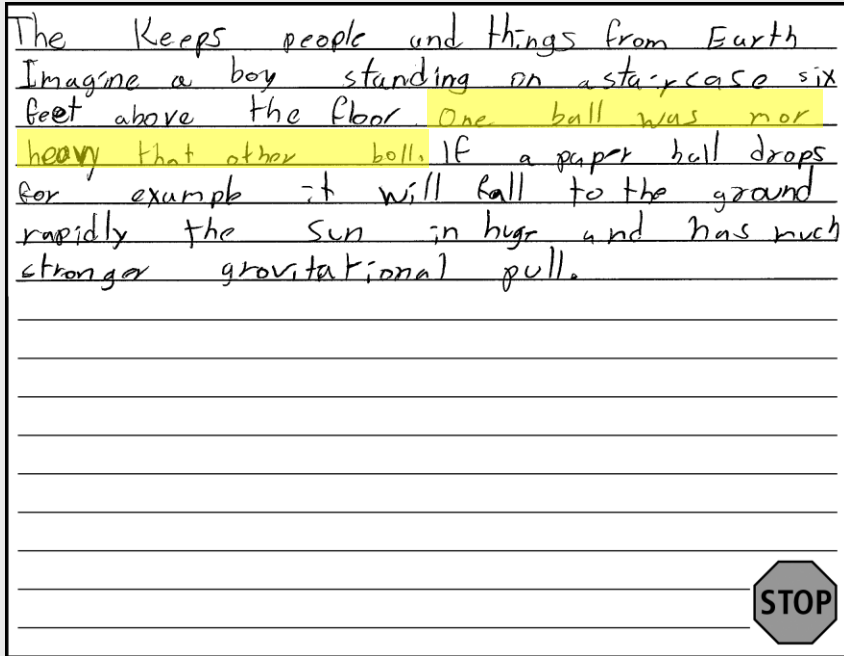 The Keeps people and things from Earth
Imagine a boy standing on a staircase six
feet above the floor. One ball was mor
heavy that other boll. If a paper ball drops
for exampb it will fall to the ground
rapidly the Sun in huge and has much
stronger grovitational pull.
STOP